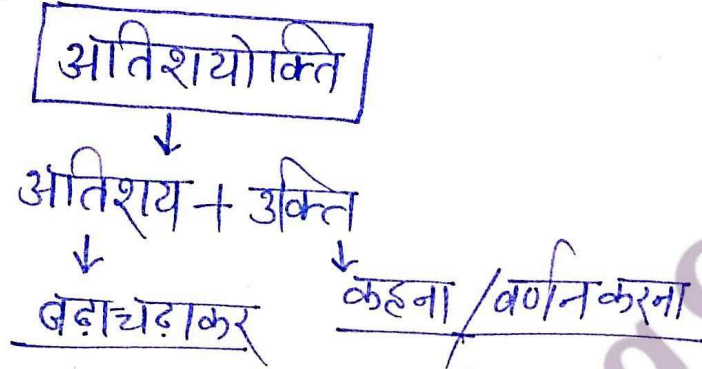 अतिशयोक्ति
↓
अतिशय + उक्ति
↓ ↓
बढ़ाचढ़ाकर कहना / वर्णन करना